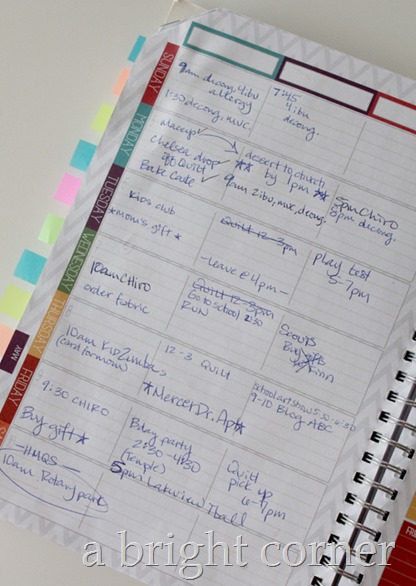 SUNDAY
9am decong, 4ibu
allergy
1:30 decong, muc.
7:45
4ibu
decong.
MONDAY
Makeup
Chelsea drop
off Quilt
Bake Cake
dessert to church
by 1pm
9am 2ibu, muc, decong.
5pm CHIRO
8pm decong.
TUESDAY
Kids club
*mom's gift*
Quilt 12-3pm
-leave @ 4pm-
play test
5-7pm
WEDNESDAY
10am CHIRO
order fabric
Quilt 12-3pm
Go to school 2:30
RUN
Scouts
Buy gifts
THURSDAY
10am Kid Zumba
(card for mom)
12-3 Quilt
*Mercer Dr. Ap*
school art show 5:30-6:30
9-10 Blog ABC
FRIDAY
9:30 CHIRO
Buy gift*
Bday party
2:30-4:30
(Temple)
Quilt
pick up
6-7pm
S
-HMQS-
10am Rotary park
5pm Lakeview Tball
a bright corner